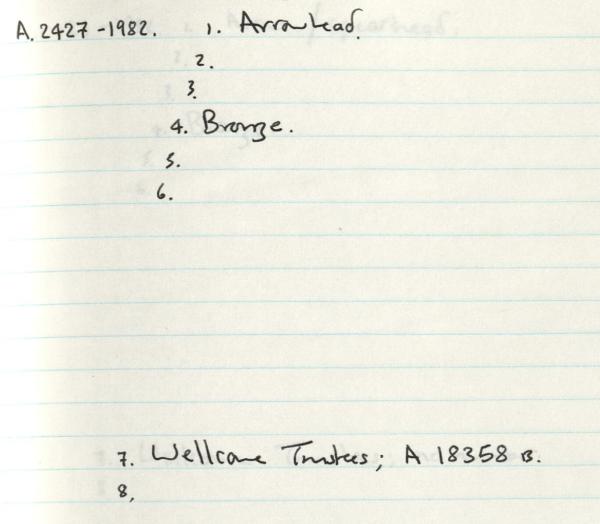 A. 2427-1982. 1. Arrowhead.
2.
3.
4. Bronze.
5.
6.
7. Wellcome Trustees; A 18358 B.
8,